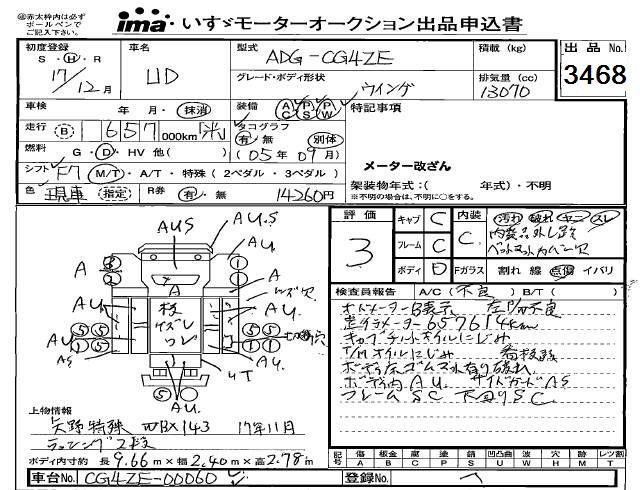 ㊟赤太枠内は必ず
ボールペンで
ご記入下さい。
ima いすゞモーターオークション出品申込書
初度登録
S・H・R
17/12月
車名
UD
型式
ADG-CG4ZE
積載(kg)
出品No.
3468
グレード・ボディ形状
ウイング
排気量(cc)
13070
車検
年 月・抹消
装備
AC PS PW
特記事項
走行
B
657
000km
タコグラフ
有・無 別体
(05年09月)
燃料
G・D・HV 他( )
メーター改ざん
シフト
F7 M/T・A/T・特殊(2ペダル・3ペダル)
架装物年式:( 年式)・不明
※不明の場合は、不明に○をする。
色
現車 指定
R券
有・無
14260円
評価
3
キャブ C
フレーム C
ボディ D
内装
C
汚れ 破れ ヤニ スレ
内装品外し跡
Fガラス
割れ 線 点傷 イバリ
検査員報告
A/C(不良) B/T( )
オドメーターB表示 左P/W不良
走行メーター657614km
キャブチルトオイルにじみ
T/Mオイルにじみ 看板跡
ボディ内AU. サイドガードAS
フレームSC 下回りSC
AUS
A.U.S
A
A
A
AU.
AU.
AU.
AS
AU.
UT
上物情報
矢野特殊 WBX143 17年11月
ラッシング2段
ボディ内寸約 長9.66m×幅2.40m×高2.78m
記号
傷 A
板金 B
腐 C
塗 P
錆 S
凹凸曲 U
波 W
穴 H
跡 M
レツ割 T
車台No.
CG4ZE-00060
登録No.